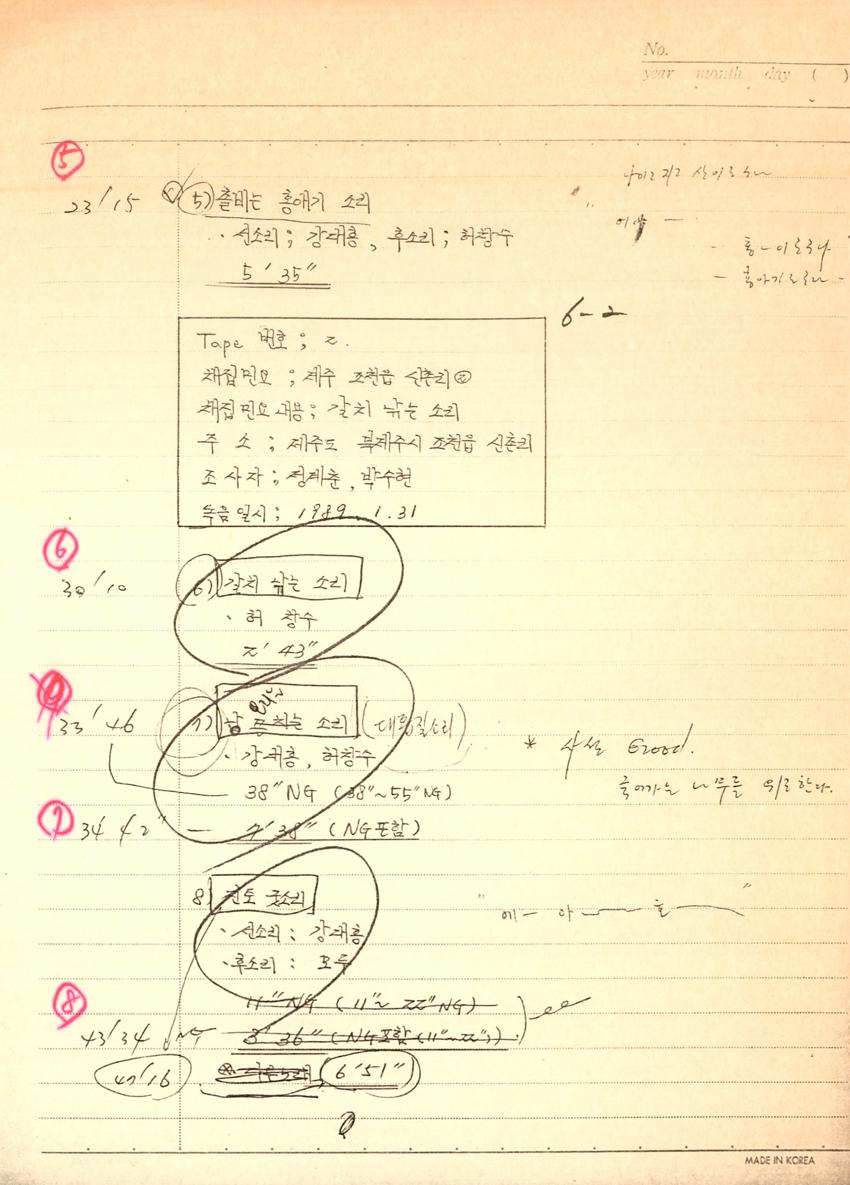 No.
year month day ( )
⑤
나이로 지고 살이로 허나
23/15 5) 촐비는 홍애기 소리
어야 —
· 선소리; 강대흥, 후소리; 허창수
- 홍-이로구나
5′35″
- 홍아기로구나 -
6-2
Tape 번호; 2.
채집민요; 제주 조천읍 신촌리②
채집민요내용; 갈치 낚는 소리
주소; 제주도 북제주시 조천읍 신촌리
조사자; 정계춘, 박수현
녹음일시; 1989. 1. 31
⑥
30/10 6) 갈치 낚는 소리
· 허 창수
2′43″
33′46 7) 낭 소리 (대톱질소리)
· 강대흥, 허창수
* 사설 Good.
38″NG (38″~55″NG)
죽어가는 나무를 위로한다.
⑦
34′42″ — 4′38″ (NG포함)
8) 진토 굿소리
"에— 아—— 호——"
· 선소리: 강대흥
· 후소리: 모두
⑧
11″NG (11″~22″NG)
43/34 NG 3′36″ (NG포함(11″~22″))
47/16 6′51″
MADE IN KOREA